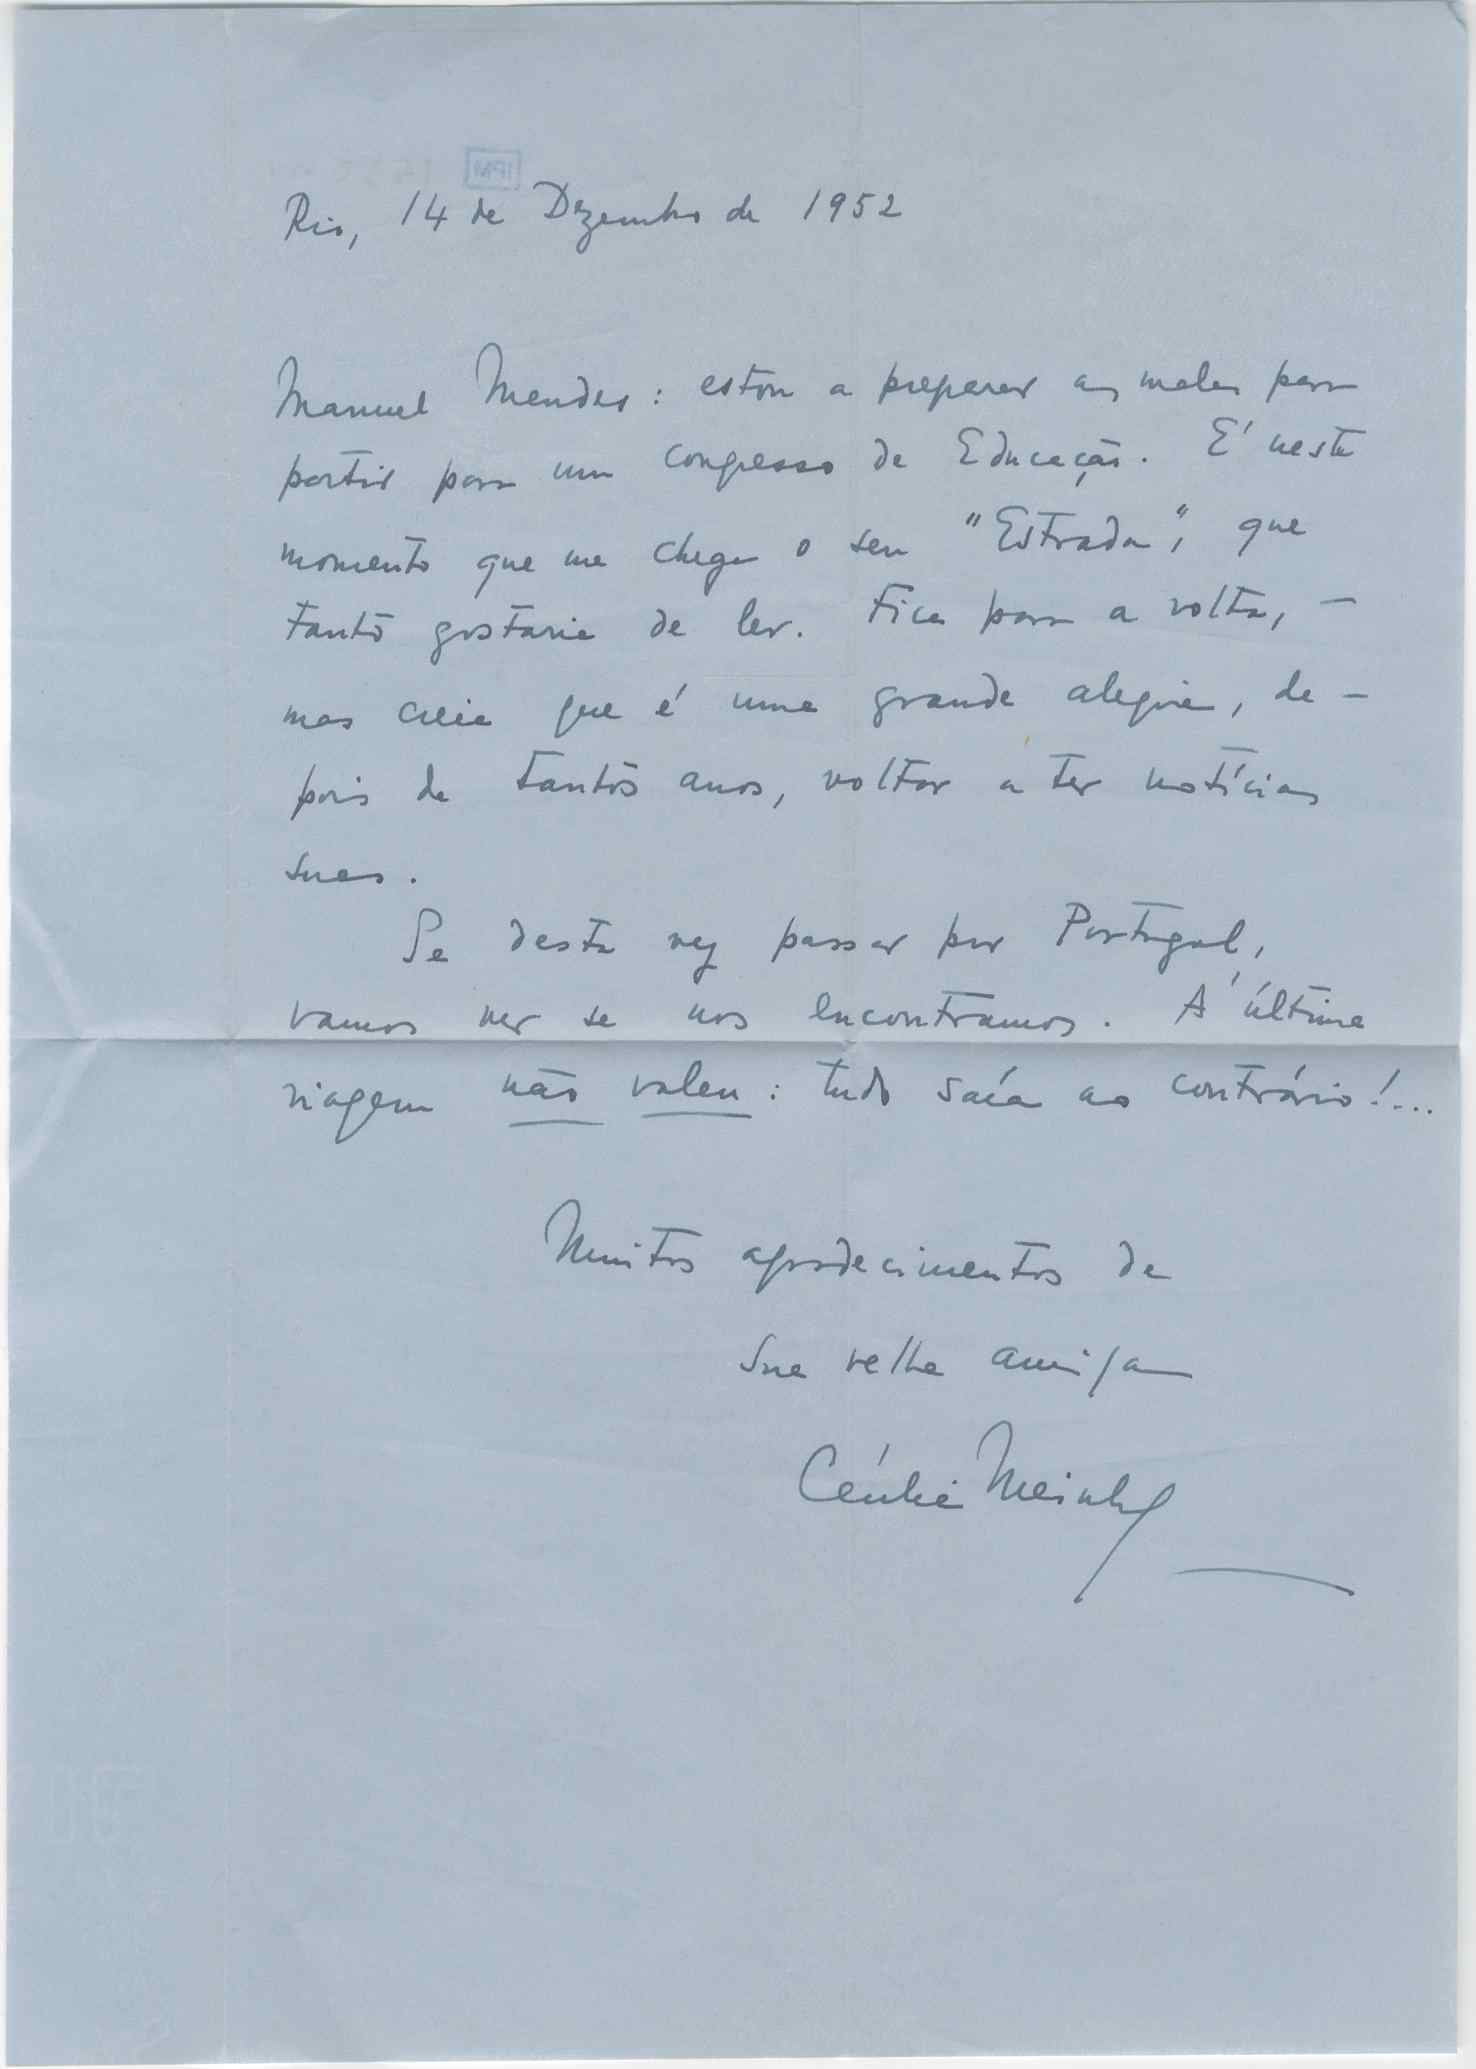 Rio, 14 de Dezembro de 1952
Manuel Mendes: estou a preparar as malas para
partir para um congresso de Educação. É neste
momento que me chega o seu "Estrada", que
tanto gostaria de ler. Fica para a volta, –
mas creia que é uma grande alegria, de-
pois de tantos anos, voltar a ter notícias
suas.
Se desta vez passar por Portugal,
vamos ver se nos encontramos. A última
viagem não valeu: tudo saía ao contrário!...
Muitos agradecimentos de
sua velha amiga
Cecília Meireles